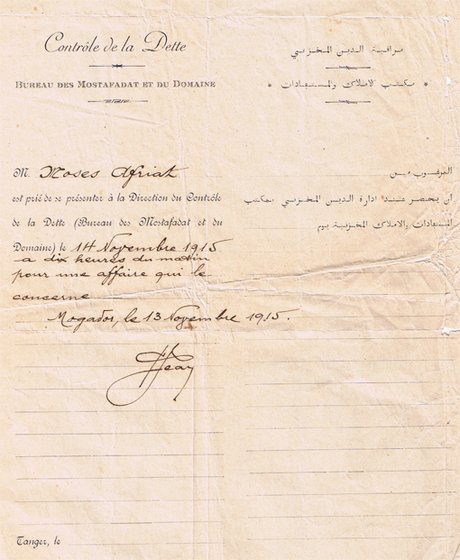 Contrôle de la Dette
BUREAU DES MOSTAFADAT ET DU DOMAINE
مراقبة الدين المخزني
* مكتب الاملاك والمستفادات *
M. Moses Afriat
est prié de se présenter à la Direction du Contrôle
de la Dette (Bureau des Mostafadat et du
Domaine) le 14 Novembre 1915
a dix heures du matin
pour une affaire qui le
concerne
Mogador, le 13 Novembre 1915.
المرغوب من
ان يحضر عند ادارة الدين المخزني بمكتب
المستفادات والاملاك المخزنية يوم
Tanger, le